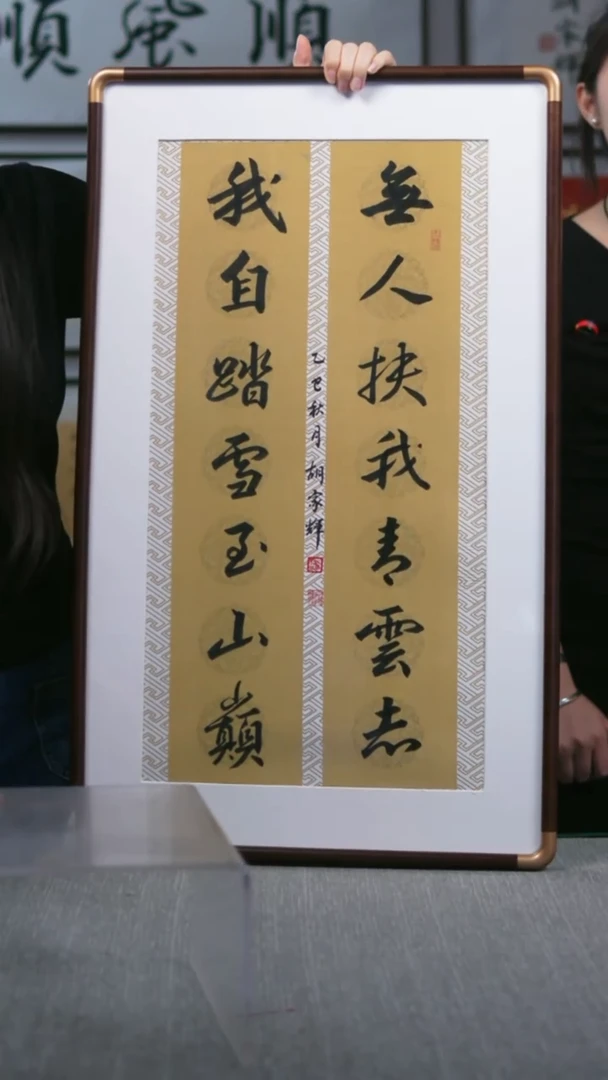 無人扶我青雲志
我自踏雪至山巔
乙巳秋月 胡家輝
順風順
家輝